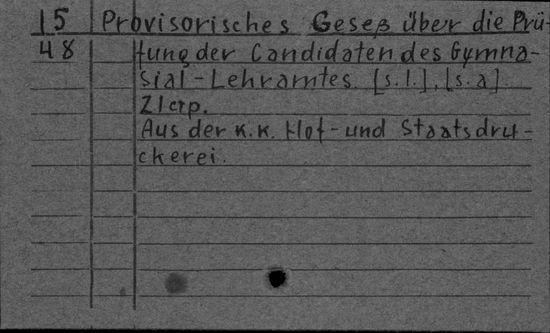 15 Provisorisches Geseß über die Prü-
48 fung der Candidaten des Gymna-
sial-Lehramtes. [s.l.], [s.a].
21 stp.
Aus der K.K. Hof- und Staatsdru-
ckerei.